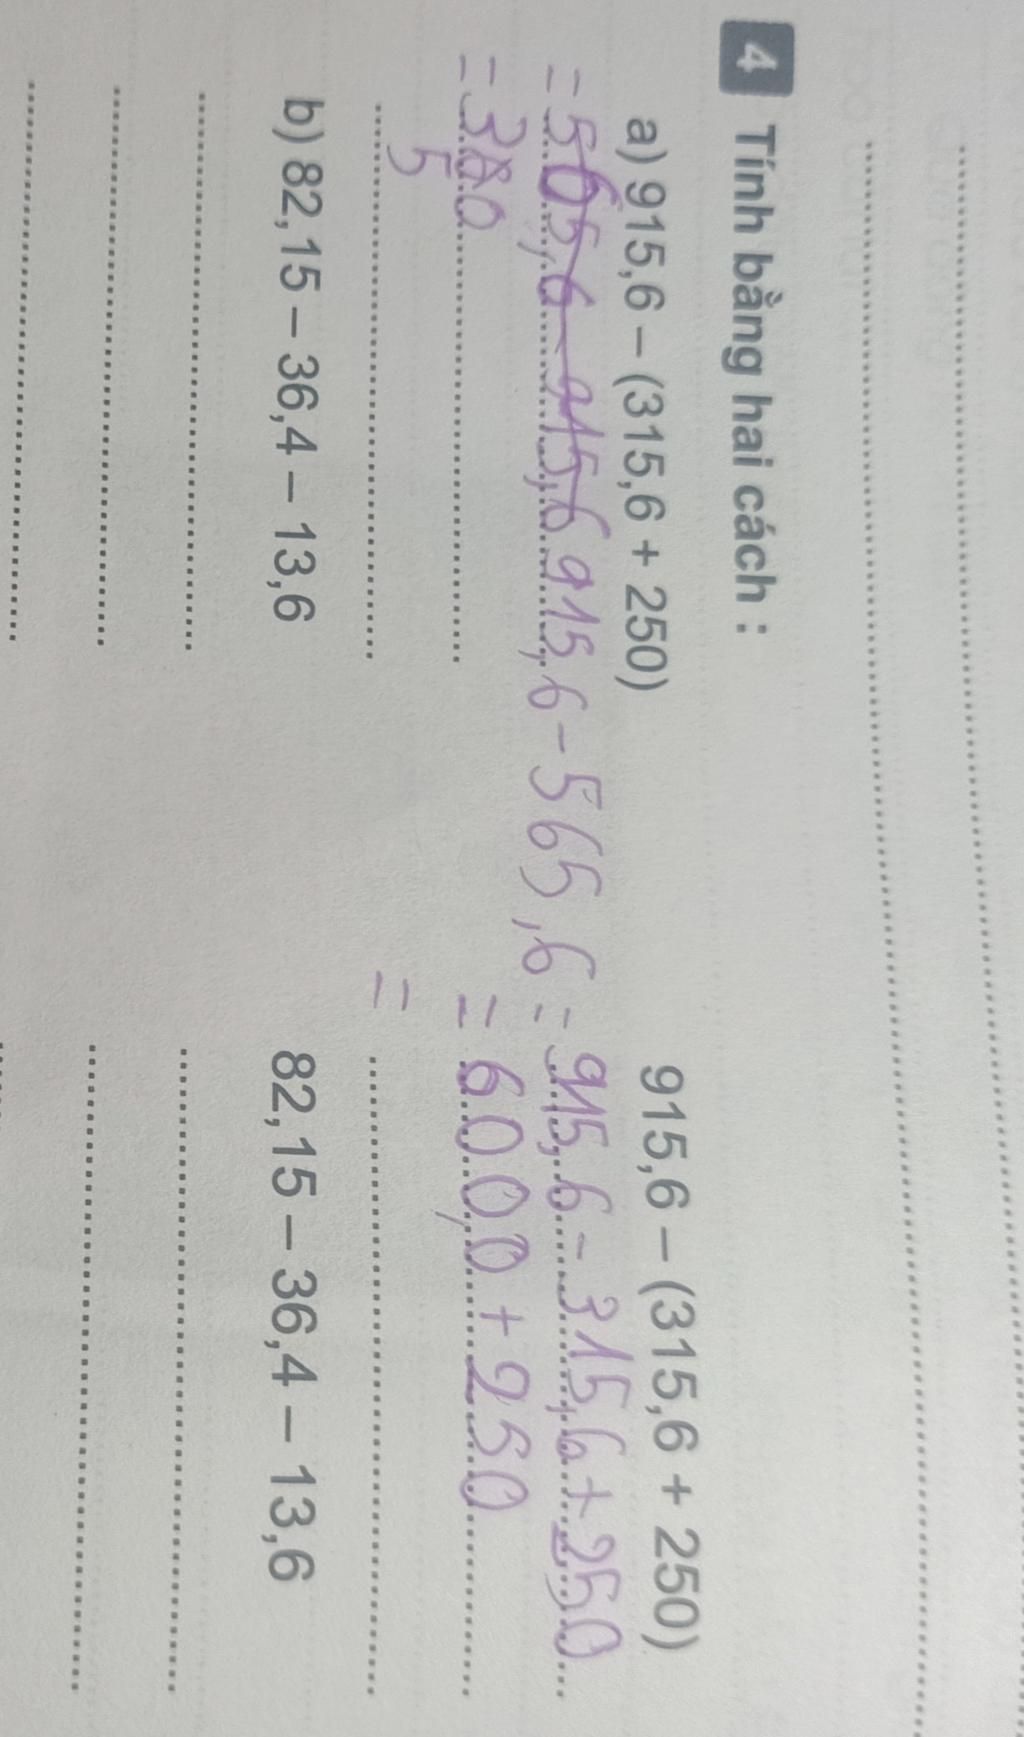 4 Tính bằng hai cách :
a) 915,6 – (315,6 + 250)
915,6 – (315,6 + 250)
= 565,6 – 915,6 915,6 – 565,6
= 915,6 – 315,6 + 250
= 380
5
= 600,0 + 250
=
b) 82,15 – 36,4 – 13,6
82,15 – 36,4 – 13,6